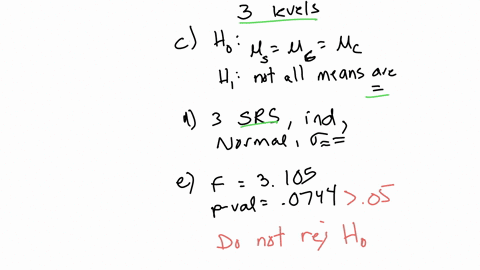 3 levels
c) H₀: μₛ = μ_G = μ_C
H₁: not all means are
=
d) 3 SRS, ind,
Normal, σ̲s =
e) F = 3.105
p-val = .0744 > .05
Do not rej H₀